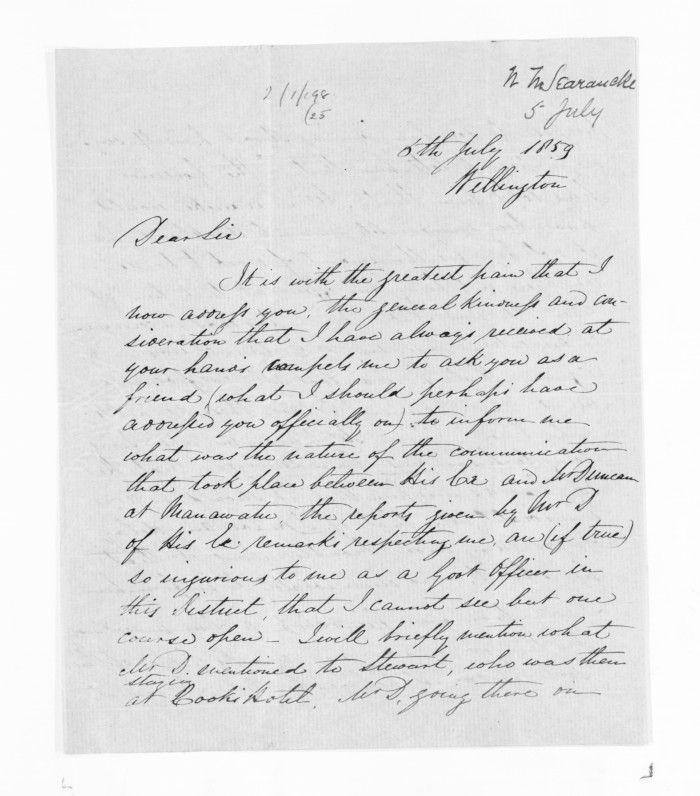 N N Searancke
5 July
2/1/198
/25
5th July 1859
Wellington
Dear Sir
It is with the greatest pain that I
now address you, the general kindness and con-
sideration that I have always received at
your hands compels me to ask you as a
friend (what I should perhaps have
addressed you officially on) to inform me
what was the nature of the communication
that took place between His Ex and Mr Duncan
at Manawatu, the reports given by Mr D
of His Ex. remarks respecting me, are (if true)
so ingurious to me as a Govt Officer in
this District, that I cannot see but one
course open - I will briefly mention what
Mr D. mentioned to Stewart, who was then
staying
at Cooks Hotel, Mr D. going there on